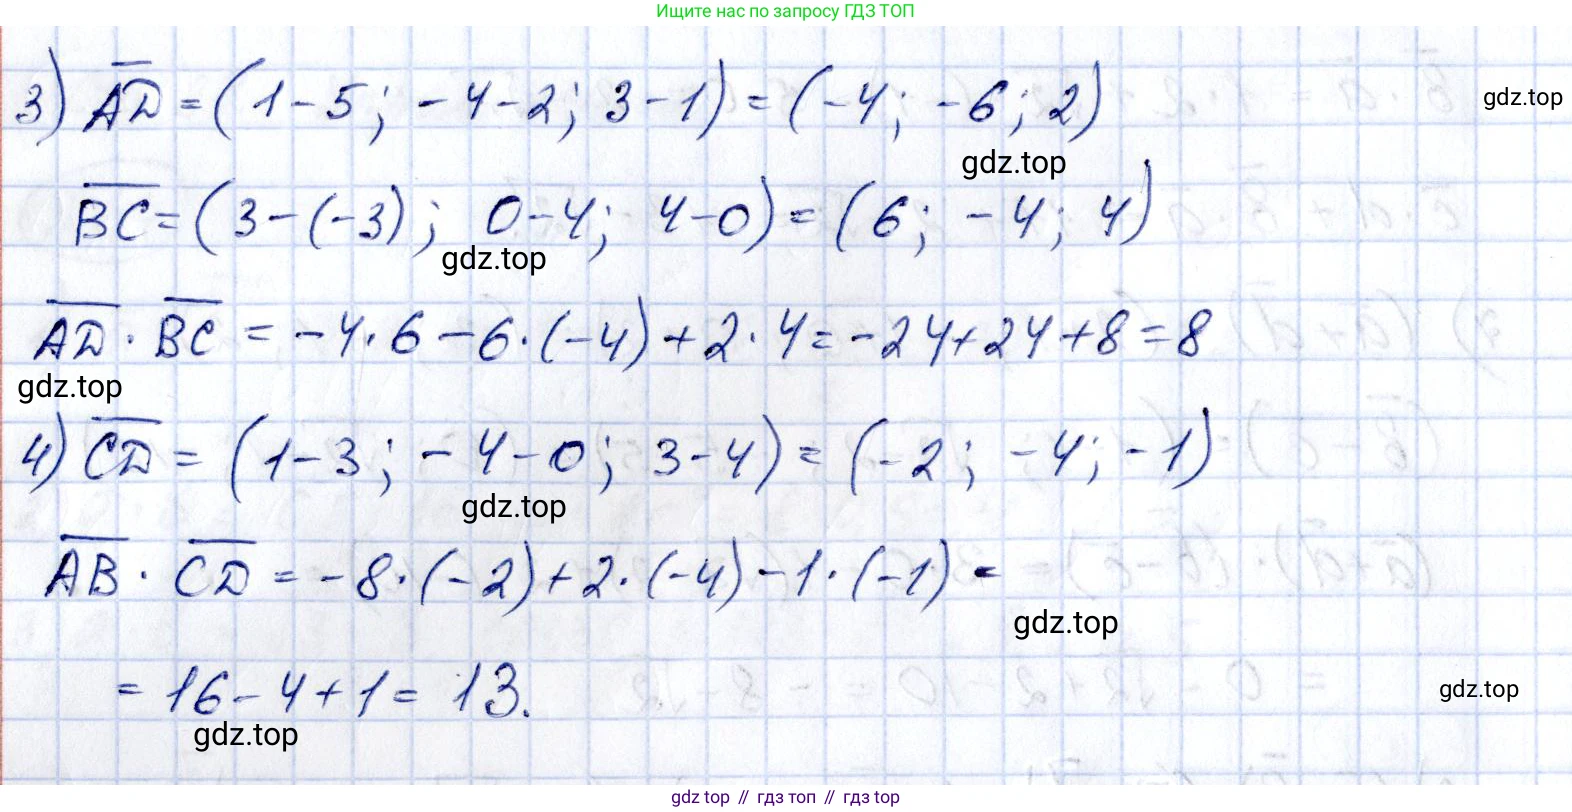 Ищите нас по запросу ГДЗ ТОП
3) AD = (1 - 5; -4 - 2; 3 - 1) = (-4; -6; 2)
gdz.top
gdz.top
BC = (3 - (-3); 0 - 4; 4 - 0) = (6; -4; 4)
gdz.top
AD · BC = -4 · 6 - 6 · (-4) + 2 · 4 = -24 + 24 + 8 = 8
gdz.top
4) CD = (1 - 3; -4 - 0; 3 - 4) = (-2; -4; -1)
gdz.top
AB · CD = -8 · (-2) + 2 · (-4) - 1 · (-1) =
gdz.top
= 16 - 4 + 1 = 13.
gdz.top
gdz.top
gdz top // гдз топ // гдз top